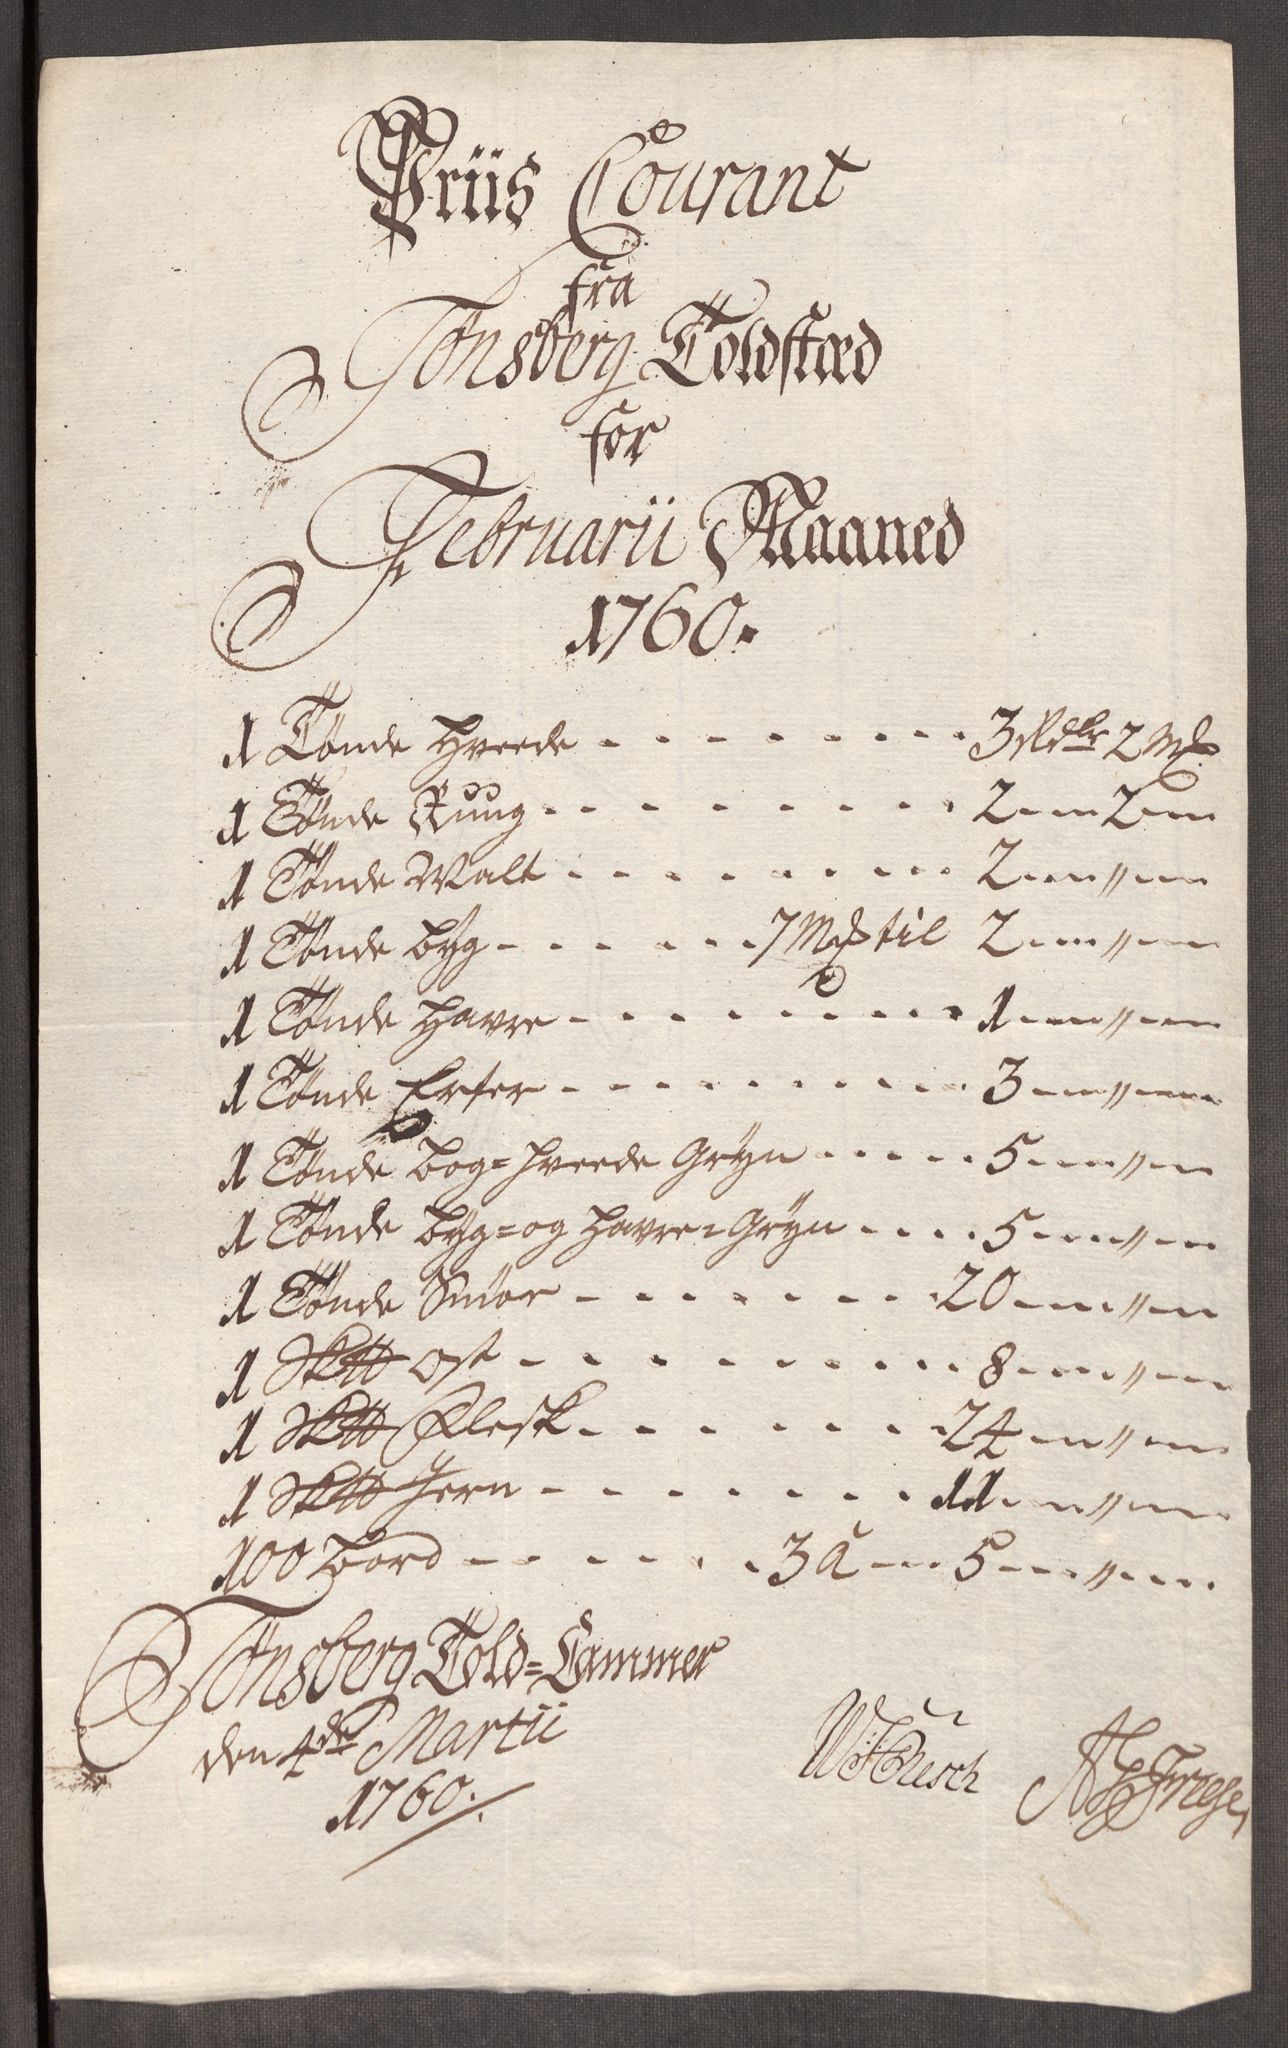 Priis Courant
fra
Tønsberg Toldstæd
for
Februarii Maaned
1760.
1 Tønde Hveede - - - - - - - - - 3 Rdlr 2 Mk
1 Tønde Ruug - - - - - - - - - 2 -"- 2 -"-
1 Tønde Malt - - - - - - - - - 2 -"- " -"-
1 Tønde byg - - - - - 7 Mk til 2 -"- " -"-
1 Tønde Havre - - - - - - - - - 1 -"- " -"-
1 Tønde Erter - - - - - - - - - 3 -"- " -"-
1 Tønde bog=hveede Grÿn - - - - - 5 -"- " -"-
1 Tønde byg=og Havre=Grÿn - - - - 5 -"- " -"-
1 Tønde Smör - - - - - - - 20 -"- " -"-
1 Sk℔ Ost - - - - - - - - - 8 -"- " -"-
1 Sk℔ Flesk - - - - - - - 24 -"- " -"-
1 Sk℔ Jern - - - - - - - - 11 -"- " -"-
100 bord - - - - - - 3 a -"- 5 -"- " -"-
Tønsberg Told=Cammer
den 4de Martii
1760.